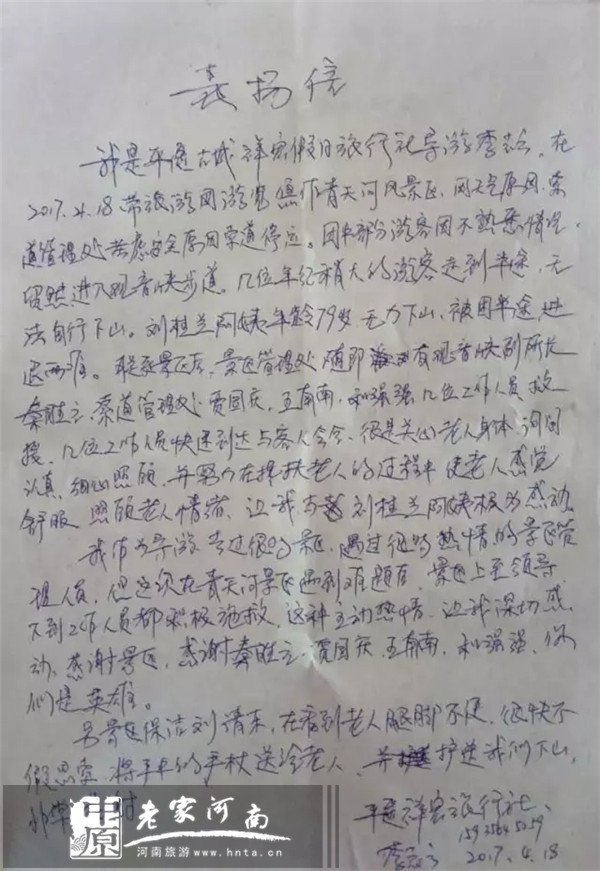 表扬信
我是平遥古城祥宏假日旅行社导游李 在
2017.4.18带旅游团游览焦作青天河风景区,因天气原因,索
道管理处考虑安全原因索道停运。团中部分游客因不熟悉情况,
贸然进入观音峡步道。几位年纪稍大的游客走到半途,无
法自行下山。刘桂兰阿姨年龄79岁,无力下山,被困半途,进
退两难。联系景区后,景区管理处随即 有观音峡 所长
秦胜立、索道管理处贾国庆,王有南,和强强几位工作人员救
援,几位工作人员快速到达与客人会合,很是关心老人身体,询问
认真,细心照顾,并努力在搀扶老人的过程中使老人感觉
舒服,照顾老人情绪,让我与刘桂兰阿姨极为感动
我作为导游去过很多景区,遇过很多热情的景区管
理人员,但这次在青天河景区遇到难题后,景区上至领导
下到工作人员都积极施救,这种主动热情,让我深切感
动,感谢景区,感谢秦胜立、贾国庆,王有南,和强强,你
们是英雄。
另景区保洁刘清东,在看到老人腿脚不便,很快不
假思索,将手中的手杖送给老人,并护送我们下山,
非常
平遥祥宏旅行社、
李
2017.4.18
中原
老家河南
河南旅游 www.hnta.cn